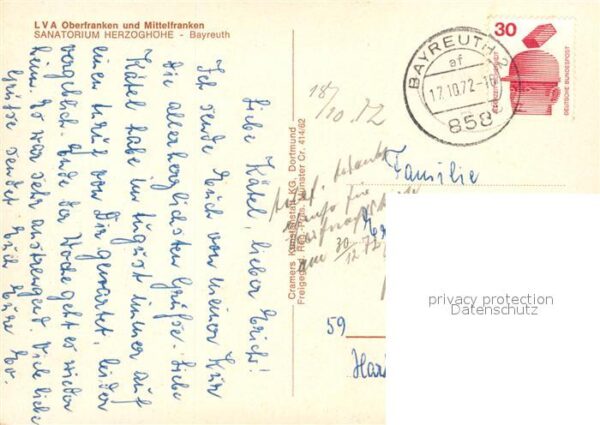 LVA Oberfranken und Mittelfranken
SANATORIUM HERZOGHÖHE - Bayreuth
Liebe Kätel, lieber Erich!
Ich sende Euch von meiner Kur
die allerherzlichsten Grüße. Liebe
Kätel habe im August immer auf
einen Anruf von Dir gewartet, leider
vergeblich. Ende der Woche geht es wieder
heim. Es war sehr anstrengend. Viele liebe
Grüße sendet Euch Eure
Cramers Kunstanstalt KG, Dortmund
Freigegeb. Reg.-Präs. Münster Nr. 414/62
18/10.72
BAYREUTH 2
af
17.10.72-16
858
30
DEUTSCHE BUNDESPOST
Familie
am 30
12.72
59
privacy protection
Datenschutz